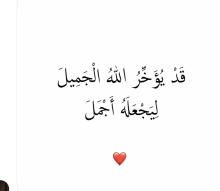 قَدْ يُؤَخِّرُ اللهُ الْجَمِيلَ
لِيَجْعَلَهُ أَجْمَلَ